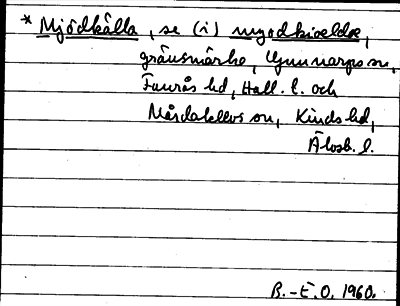 * Mjödkälla, se (i) myodkiældæ,
gränsmärke, Gunnarps sn,
Faurås hd, Hall. l. och
Mårdaklevs sn, Kinds hd,
Älvsb. l.
B.-E. O. 1960.